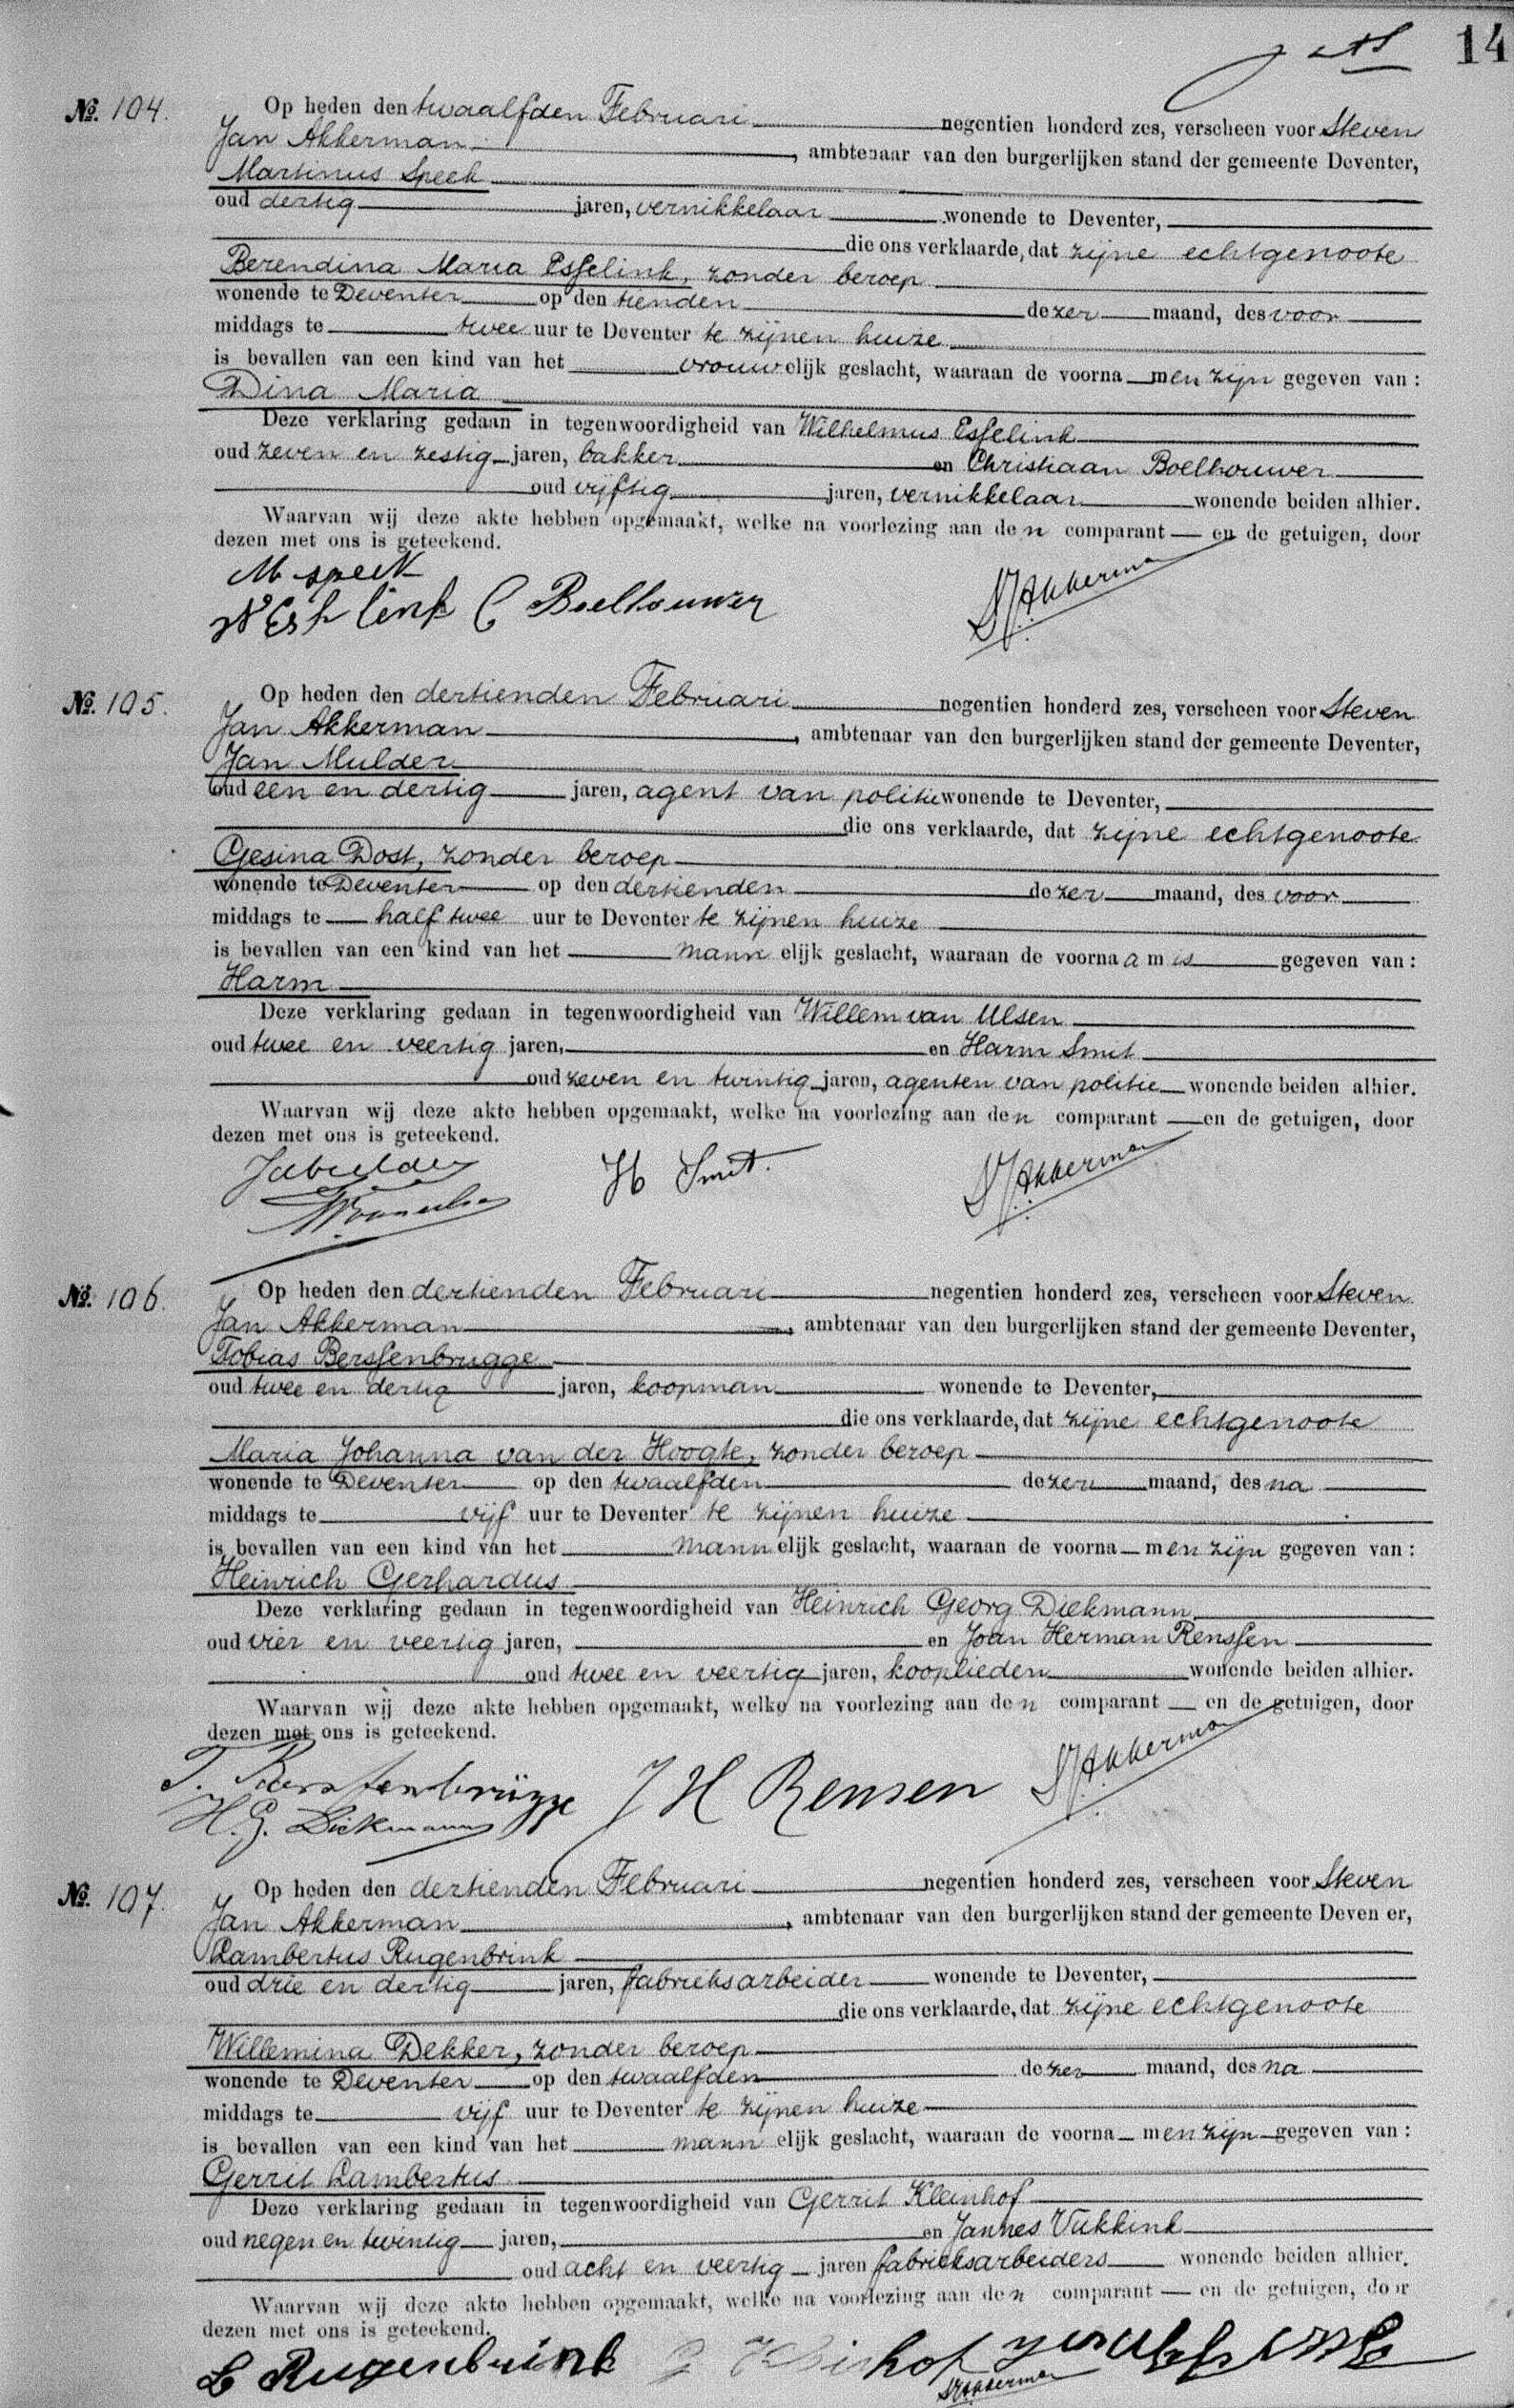 14
No. 104.
Op heden den twaalfden Februari negentien honderd zes, verscheen voor Steven
Jan Akkerman, ambtenaar van den burgerlijken stand der gemeente Deventer,
Martinus Speek
oud dertig jaren, vernikkelaar wonende te Deventer,
die ons verklaarde, dat zijne echtgenoote
Berendina Maria Esselink, zonder beroep
wonende te Deventer op den tienden dezer maand, des voor
middags te twee uur te Deventer te zijnen huize
is bevallen van een kind van het vrouwelijk geslacht, waaraan de voorna men zijn gegeven van:
Dina Maria
Deze verklaring gedaan in tegenwoordigheid van Wilhelmus Esselink
oud zeven en zestig jaren, bakker en Christiaan Boelhouwer
oud vijftig jaren, vernikkelaar wonende beiden alhier.
Waarvan wij deze akte hebben opgemaakt, welke na voorlezing aan den comparant en de getuigen, door
dezen met ons is geteekend.
M speek
W Esselink C Boelhouwer SJAkkerman
No. 105.
Op heden den dertienden Februari negentien honderd zes, verscheen voor Steven
Jan Akkerman, ambtenaar van den burgerlijken stand der gemeente Deventer,
Jan Mulder
oud een en dertig jaren, agent van politie wonende te Deventer,
die ons verklaarde, dat zijne echtgenoote
Gesina Dost, zonder beroep
wonende te Deventer op den dertienden dezer maand, des voor
middags te half twee uur te Deventer te zijnen huize
is bevallen van een kind van het mannelijk geslacht, waaraan de voornaam is gegeven van:
Harm
Deze verklaring gedaan in tegenwoordigheid van Willem van Ulsen
oud twee en veertig jaren, en Harm Smit
oud zeven en twintig jaren, agenten van politie wonende beiden alhier.
Waarvan wij deze akte hebben opgemaakt, welke na voorlezing aan den comparant en de getuigen, door
dezen met ons is geteekend.
H Smit. SJAkkerman
No. 106.
Op heden den dertienden Februari negentien honderd zes, verscheen voor Steven
Jan Akkerman, ambtenaar van den burgerlijken stand der gemeente Deventer,
Tobias Berssenbrugge
oud twee en dertig jaren, koopman wonende te Deventer,
die ons verklaarde, dat zijne echtgenoote
Maria Johanna van der Hoogte, zonder beroep
wonende te Deventer op den twaalfden dezer maand, des na
middags te vijf uur te Deventer te zijnen huize
is bevallen van een kind van het mannelijk geslacht, waaraan de voorna men zijn gegeven van:
Heinrich Gerhardus
Deze verklaring gedaan in tegenwoordigheid van Heinrich Georg Diekmann
oud vier en veertig jaren, en Joan Herman Renssen
oud twee en veertig jaren, kooplieden wonende beiden alhier.
Waarvan wij deze akte hebben opgemaakt, welke na voorlezing aan den comparant en de getuigen, door
dezen met ons is geteekend.
T. Berssenbrügge J H Rensen SJAkkerman
H. G. Diekmann
No. 107.
Op heden den dertienden Februari negentien honderd zes, verscheen voor Steven
Jan Akkerman, ambtenaar van den burgerlijken stand der gemeente Deven er,
Lambertus Rugenbrink
oud drie en dertig jaren, fabrieksarbeider wonende te Deventer,
die ons verklaarde, dat zijne echtgenoote
Willemina Dekker, zonder beroep
wonende te Deventer op den twaalfden dezer maand, des na
middags te vijf uur te Deventer te zijnen huize
is bevallen van een kind van het mannelijk geslacht, waaraan de voorna men zijn gegeven van:
Gerrit Lambertus
Deze verklaring gedaan in tegenwoordigheid van Gerrit Kleinhof
oud negen en twintig jaren, en Jannes Vukkink
oud acht en veertig jaren fabrieksarbeiders wonende beiden alhier.
Waarvan wij deze akte hebben opgemaakt, welke na voorlezing aan den comparant en de getuigen, door
dezen met ons is geteekend.
L Rugenbrink
SJAkkerman